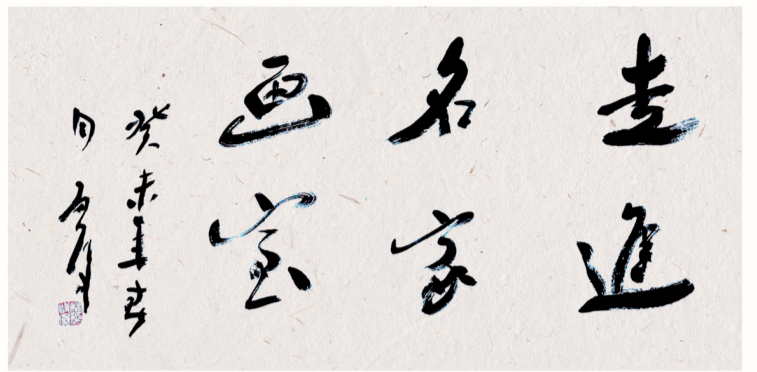 走進
名家
画室
癸未年春
月